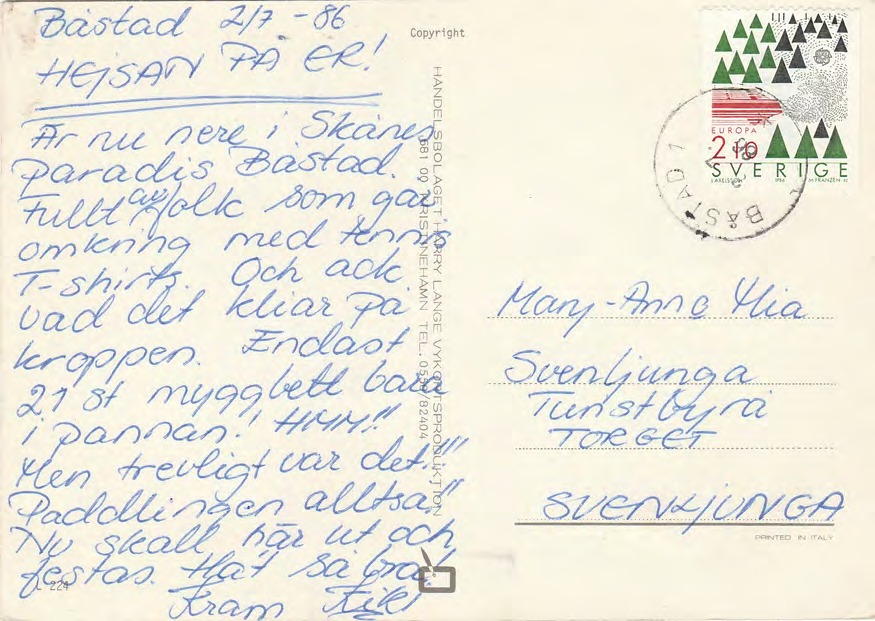 Båstad 2/7 -86
HEJSAN PÅ ER!
Är nu nere i Skånes
paradis Båstad.
Fullt av folk som går
omkring med tennis
T-shirts. Och ack
vad det kliar på
kroppen. Endast
21 st myggbett bara
i pannan! HMM!!
Men trevligt var det!!
Paddlingen alltså!!
Nu skall här ut och
festas. Hat så bra!
Kram
L 224
Copyright
HANDELSBOLAGET HARRY LANGE VYKORTSPRODUKTION
681 00 KRISTINEHAMN TEL. 0550/82404
EUROPA
2.10
SVERIGE
LAXELSSON 1986 M FRANZÉN SC
BÅSTAD 1
Mary-Anne Mia
Svenljunga
Turistbyrå
TORGET
SVENLJUNGA
PRINTED IN ITALY